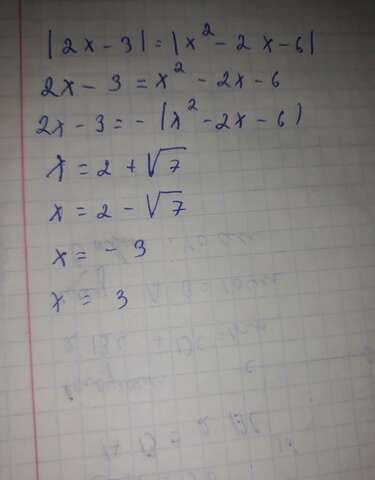 |2x - 3| = |x² - 2x - 6|
2x - 3 = x² - 2x - 6
2x - 3 = - (x² - 2x - 6)
x = 2 + √7
x = 2 - √7
x = - 3
x = 3